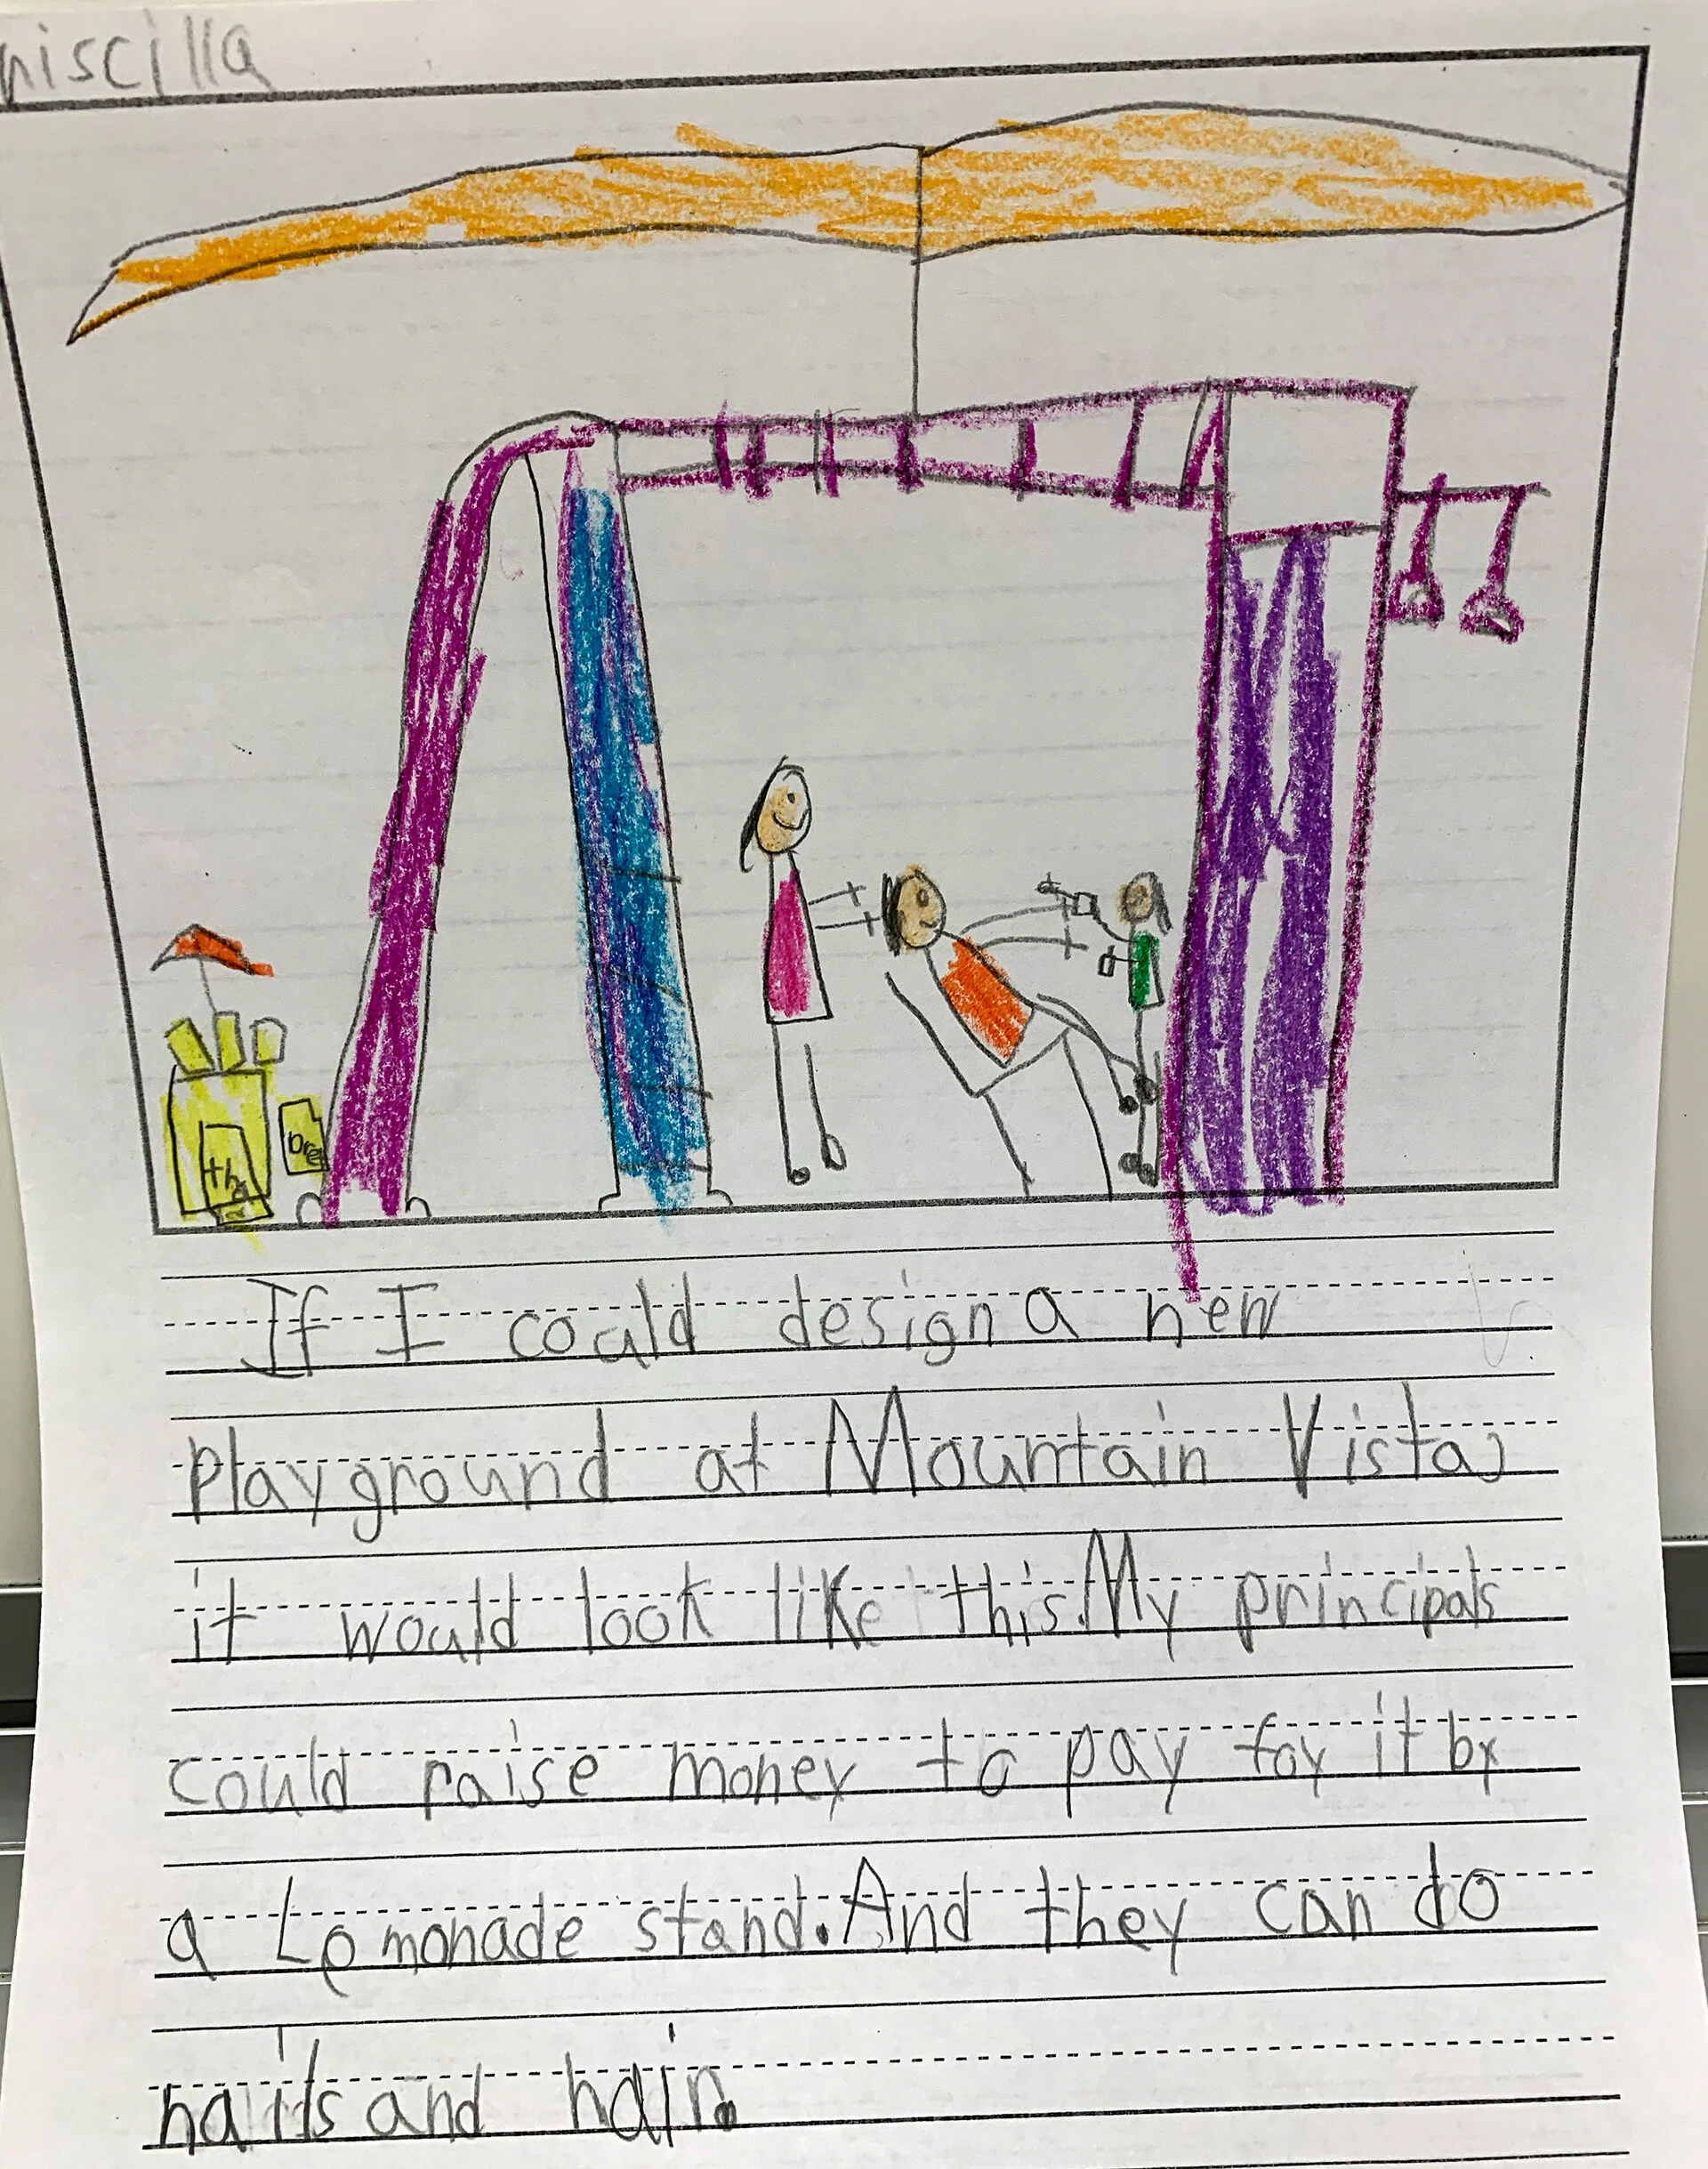 niscilla
the
bre
If I could design a new
Playground at Mountain Vista,
it would look like this. My principals
could raise money to pay for it by
a Lemonade stand. And they can do
nails and hair.